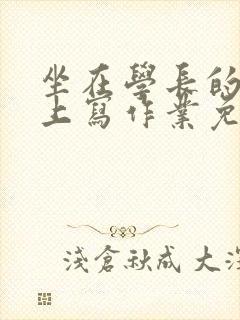 坐在學長的
上寫作業免
淺倉秋成 大深